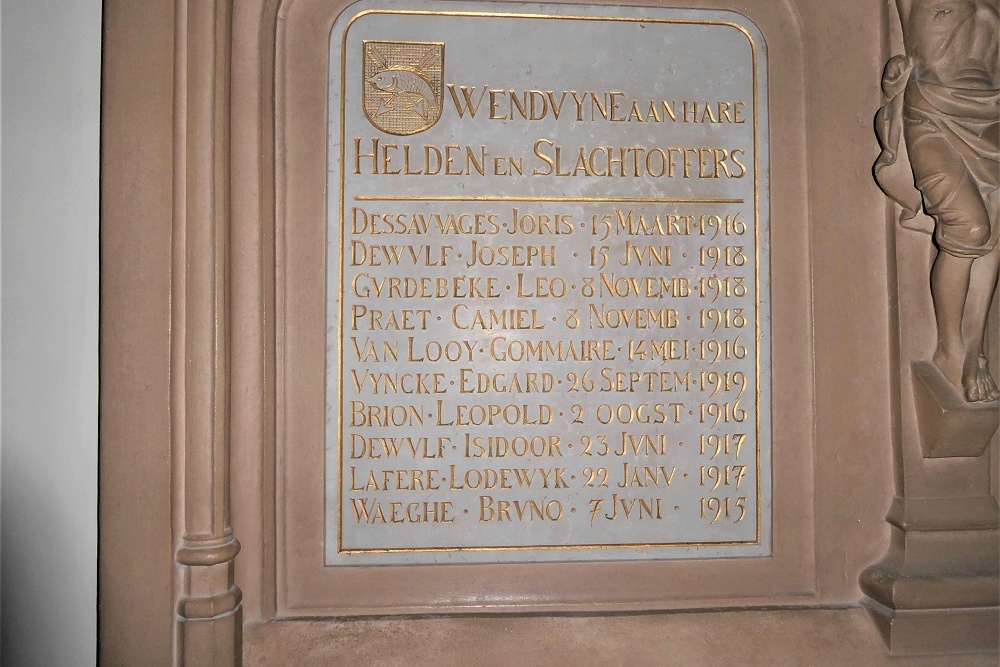 WENDVYNE AAN HARE
HELDEN EN SLACHTOFFERS
DESSAVVAGES · JORIS · 15 MAART · 1916
DEWVLF · JOSEPH · 15 JVNI · 1918
GVRDEBEKE · LEO · 8 NOVEMB · 1918
PRAET · CAMIEL · 8 NOVEMB · 1918
VAN LOOY · GOMMAIRE · 14 MEI · 1916
VYNCKE · EDGARD · 26 SEPTEM · 1919
BRION · LEOPOLD · 2 OOGST · 1916
DEWVLF · ISIDOOR · 23 JVNI · 1917
LAFERE · LODEWYK · 22 JANV · 1917
WAEGHE · BRVNO · 7 JVNI · 1915